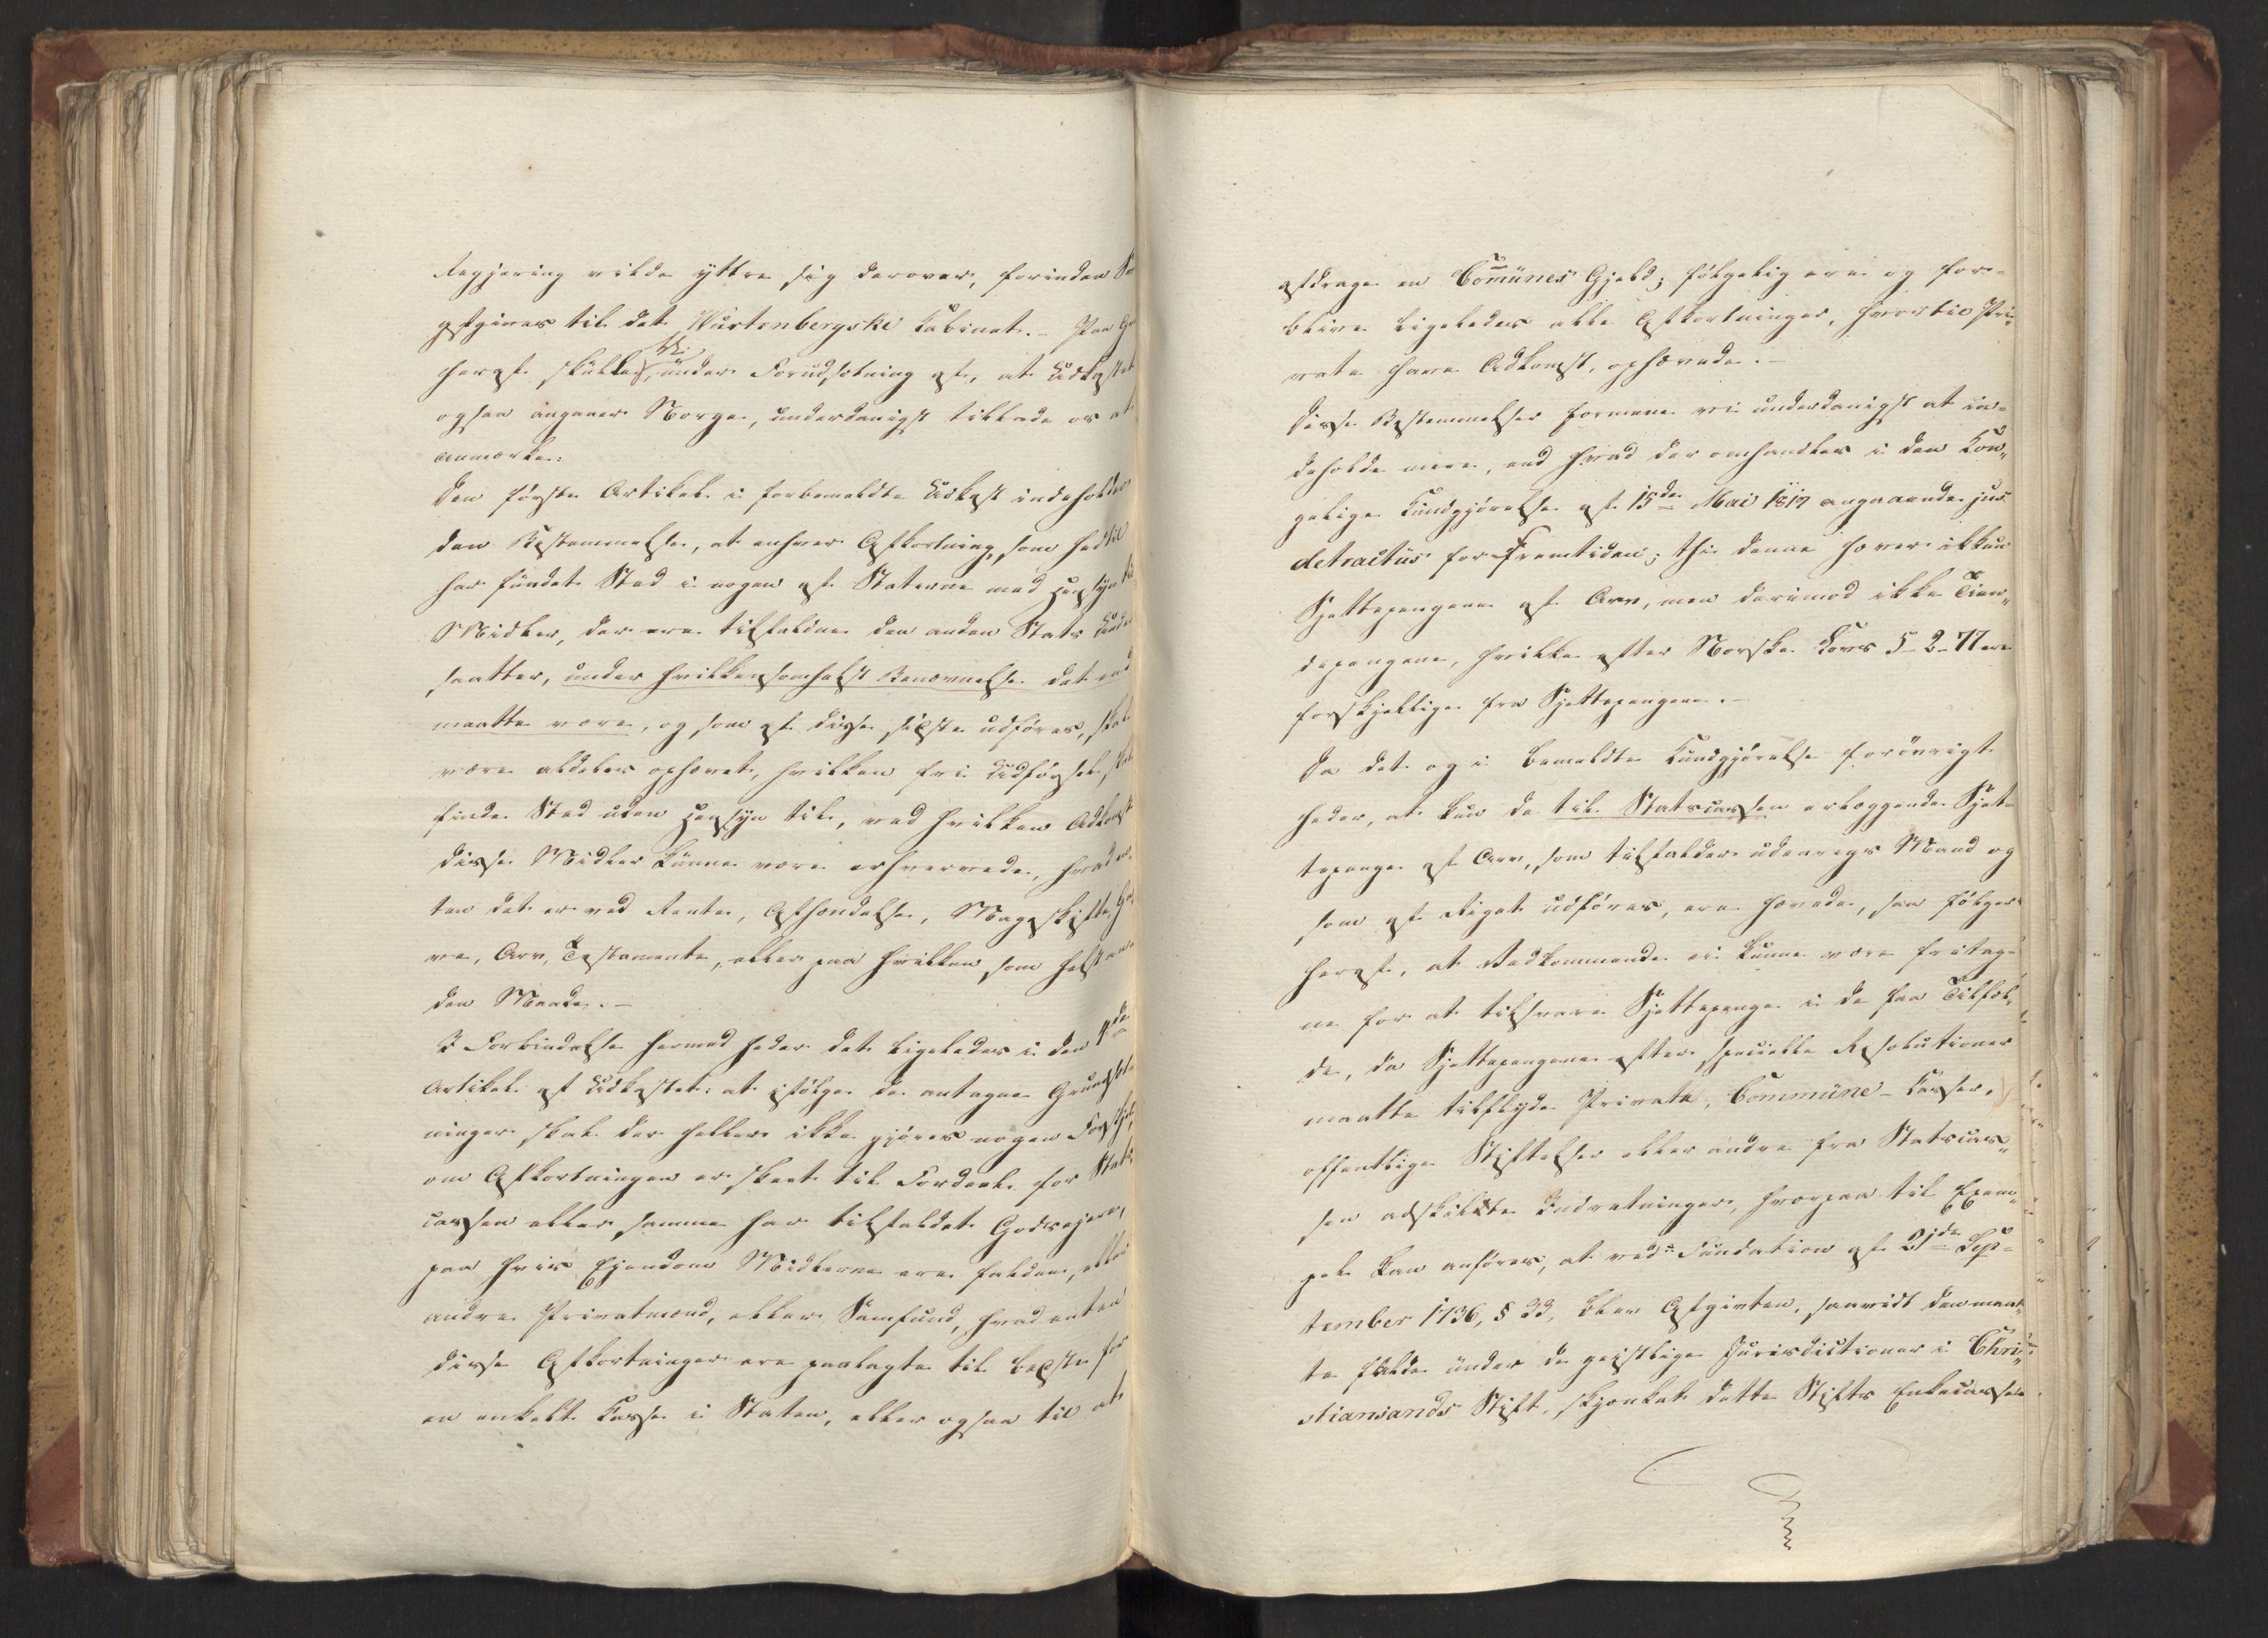 Regjering vilde yttre sig derover, forinden Sva
afgives til det Würtenbergske Cabinet. – Paa Gr
heraf skulle vi, under Forudsætning af, at Udkastet
ogsaa angaaer Norge, underdanigst tillade os at
anmærke:
Den første Artikel i forbemeldte Udkast indeholder
den Bestemmelse, at enhver Afkortning, som hidtil
har fundet Sted i nogen af Staterne med Hensyn til
Midler, der ere tilfaldne den anden Stats Under
saatter, under hvilkensomhelst Benævnelse det end
maatte være, og som af disse sidste udføres, skal
være aldeles ophævet, hvilken fri Udførsel skal
finde Sted uden Hensyn til, ved hvilken Adkomst
disse Midler kunne være erhvervede, hvad en
ten det er ved Rente, Afhændelse, Mageskifte, Ga
ve, Arv, Testamente, eller paa hvilken som helst an
den Maade. –
I Forbindelse hermed heder det ligeledes i den 4de
Artikel af Udkastet: at ifølge de antagne Grundsæt
ninger skal der heller ikke gjøres nogen Forskjel,
om Afkortningen er skeet til Fordeel for Stats
cassen eller samme har tilfaldet Godsejere,
paa hvis Ejendom Midlerne ere faldne, eller
andre Privatmænd, eller Samfund, hvad enten
disse Afkortninger ere paalagte til bedste for
en enkelt Casse i Staten, eller ogsaa til at
afdrage en Communes Gjeld; følgelig ere og for-
blive ligeledes alle Afkortninger, hvortil Pri„
vate have Adkomst, ophævede. –
Disse Bestemmelser formene vi underdanigst at in-
deholde mere, end hvad der omhandles i den Kon„
gelige Kundgjørelse af 15de Mai 1817 angaaende jus
detractus for Fremtiden; thi denne hæver ikkun
Sjettepengene af Arv, men derimod ikke Tien„
depengene, hvilke efter Norske Lovs 5-2-77 ere
forskjellige fra Sjettepengene. –
Da det og i bemeldte Kundgjørelse forövrigt
heder, at kun de til Statscassen erlæggende Sjet-
tepenge af Arv, som tilfalder udenrigs Mand og
som af Riget udføres, ere hævede, saa følger
heraf, at Vedkommende ei kunne være fritag-
ne for at tilsvare Sjettepenge i de faa Tilfæl„
de, da Sjettepengene efter specielle Resolutioner
maatte tilflyde Private, Commüne-Casser,
offentlige Stiftelser eller andre fra Statscas„
sen adskilte Indretninger, hvorpaa til Exem„
pel kan anføres, at ved Fundation af 21de Sep-
tember 1736, § 33, blev Afgivten, saavidt den maat„
te falde under de geistlige Jurisdictioner i Chri„
stiansands Stift, skjenket dette Stifts Enkecasse